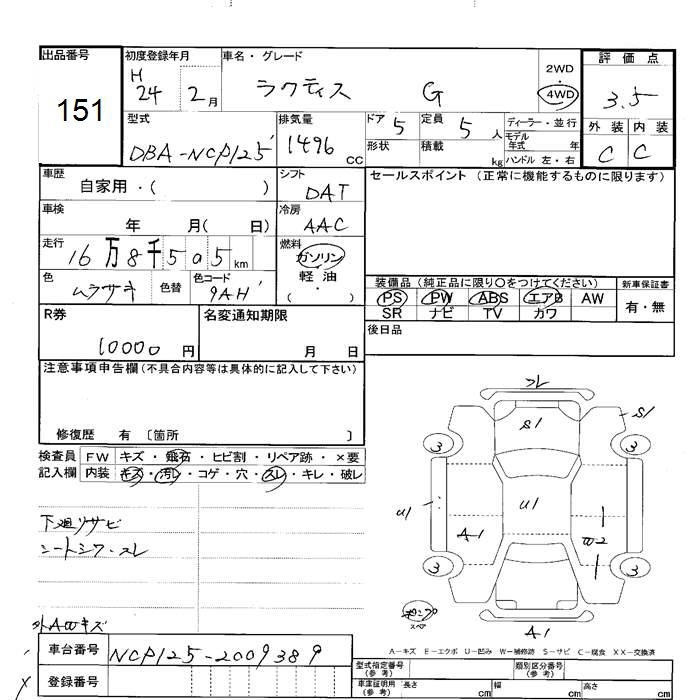 出品番号
151
初度登録年月
H
24 2月
車名・グレード
ラクティス G
2WD
・
4WD
評価点
3.5
外装 内装
C C
型式
DBA-NCP125
排気量
1496 cc
ドア 5
定員 5 人
形状
積載 kg
ディーラー・並行
モデル年式 年
ハンドル 左・右
車歴
自家用・( )
シフト
DAT
セールスポイント (正常に機能するものに限ります)
車検
年 月( 日)
冷房
AAC
走行
16万8千505km
燃料
ガソリン
軽油
・
( )
色
ムラサキ
色替
色コード
9AH
装備品 (純正品に限り○をつけてください)
PS PW ABS エアB AW
SR ナビ TV カワ
新車保証書
有・無
R券
10000 円
名変通知期限
月 日
後日品
注意事項申告欄 (不具合内容等は具体的に記入して下さい)
修復歴 有 〔箇所 〕
検査員
記入欄
FW キズ・飛石・ヒビ割・リペア跡・×要
内装 キズ・汚レ・コゲ・穴・スレ・キレ・破レ
下廻リサビ
シートシワ・スレ
外AWキズ
スレ
S1
S1
3
3
U1
U1
A1
W2
3
3
スペア
A1
A-キズ E-エクボ U-凹み W-補修跡 S-サビ C-腐食 XX-交換済
車台番号
NCP125-2009389
登録番号
型式指定番号
(参考)
類別区分番号
(参考)
車庫証明用
(参考)
長さ cm
幅 cm
高さ cm